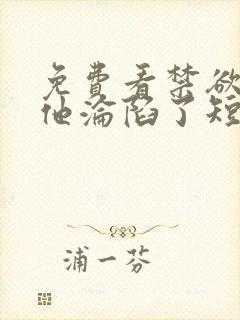 免費看禁欲
他淪陷了短
浦一芬